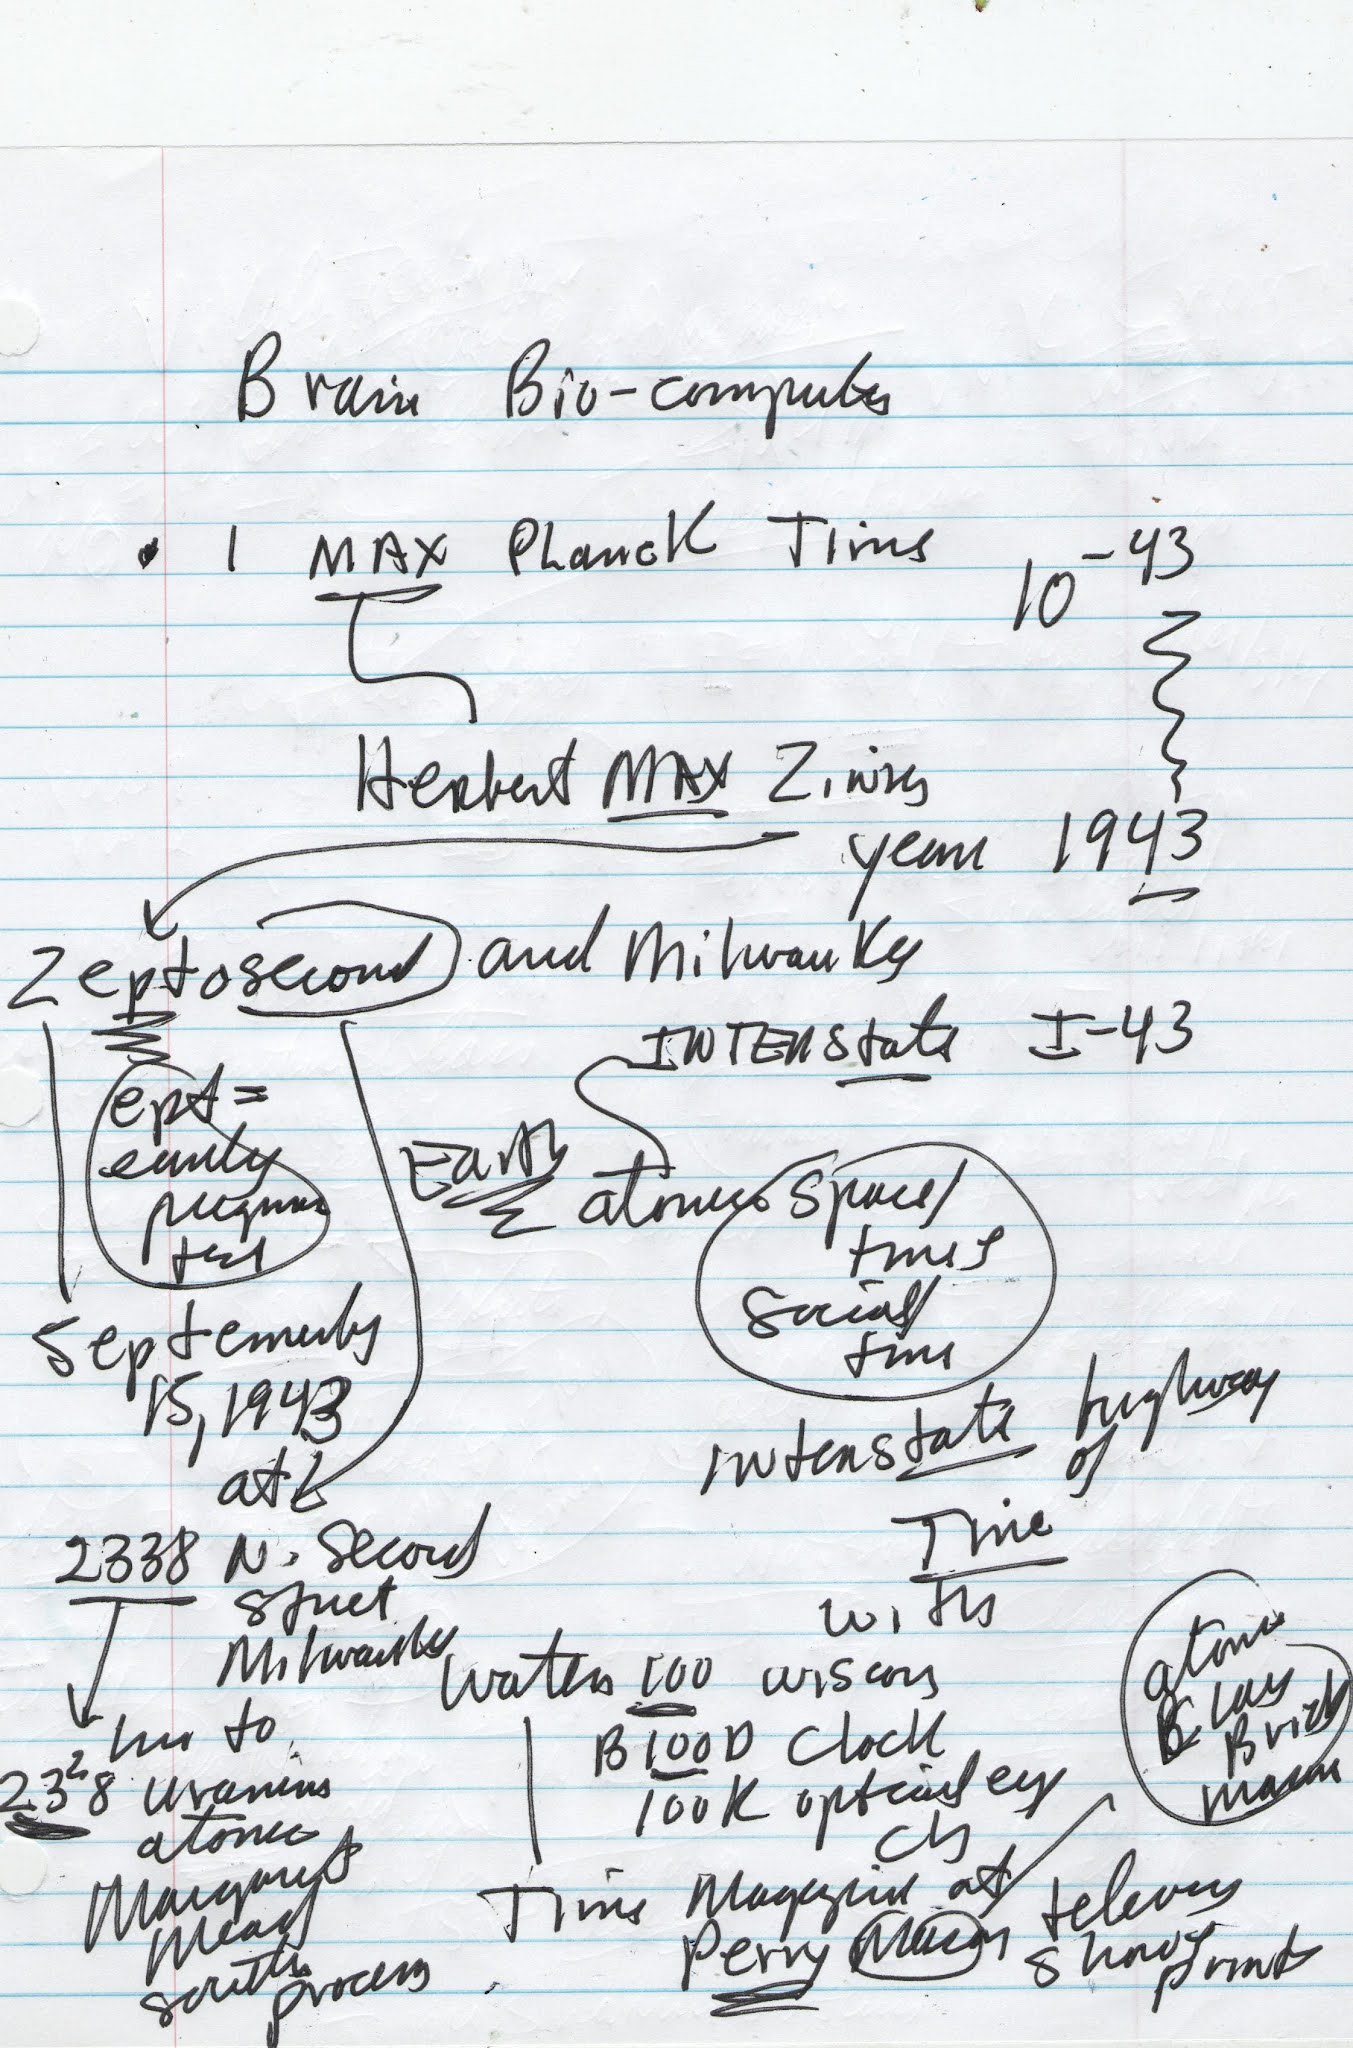 Brain Bio-computer
1 MAX PLancK Time
10^-43
Herbert MAX
year 1943
Zeptosecond and Milwaukee
INTERState I-43
ept =
early
test
Earth atomic space/
times
social/
time
September
15, 1943
at
interstate highway
of
Time
with
2338 N. Second
street
Milwaukee
Water 100
B100D Clock
100K optical eye
to
238 Uranium
atomic
Margaret
Mead
process
atomic
Clay
Brick
Mason
Time Magazine at
Perry Mason
show